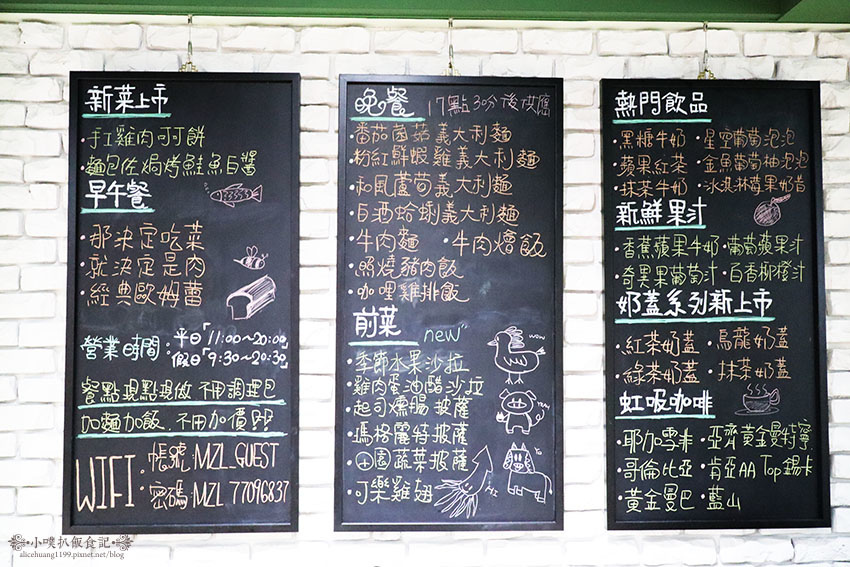 新菜上市
·手工雞肉可可餅
·麵包佐焗烤鮭魚白醬
早午餐
·那決定吃菜
·就決定是肉
·經典歐姆蕾
營業時間:平日「11:00~20:00」
假日「9:30~20:30」
餐點現點現做 不用調理包
加麵加飯.不用加價即
WIFI
·帳號:MZL_GUEST
·密碼:MZL 77096837
晚餐 17點30分後供應
·番茄菌菇義大利麵
·粉紅鮮蝦雞義大利麵
·和風蘆筍義大利麵
·白酒蛤蜊義大利麵
·牛肉麵 ·牛肉燴飯
·照燒豬肉飯
·咖哩雞排飯
前菜 new"
·季節水果沙拉
·雞肉蛋油醋沙拉
·起司燻腸披薩
·瑪格麗特披薩
·田園蔬菜披薩
·可樂雞翅
wow
熱門飲品
·黑糖牛奶 ·星空葡萄泡泡
·蘋果紅茶 ·金魚葡萄柚泡泡
·抹茶牛奶 ·冰淇淋莓果奶昔
新鮮果汁
·香蕉蘋果牛奶 ·葡萄蘋果汁
·奇異果葡萄汁 ·白香柳橙汁
奶蓋系列新上市
·紅茶奶蓋 ·烏龍奶蓋
·綠茶奶蓋 ·抹茶奶蓋
虹吸咖啡
·耶加雪菲 ·亞齊黃金曼特寧
·哥倫比亞 ·肯亞AA Top錫卡
·黃金曼巴 ·藍山
小噗扒飯食記
alicehuang1199.pixnet.net/blog